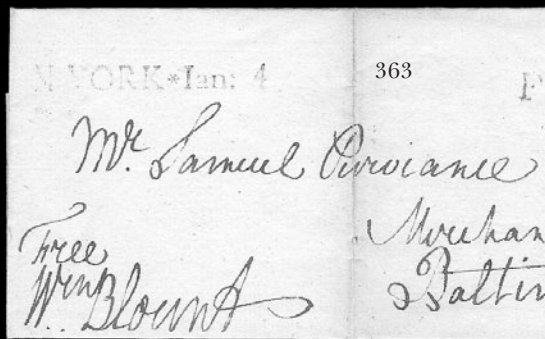 N.YORK*Ian: 4
363
Mr. Samuel Purviance
Merchan
Free
Baltim
Wm Blount